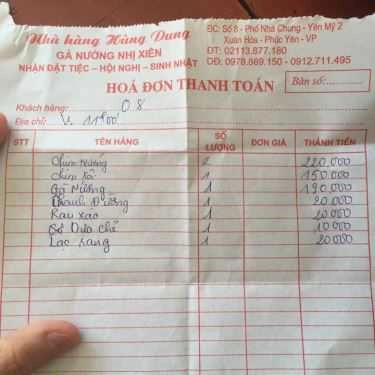 Nhà hàng Hàng Dung
GÀ NƯỚNG NHỊ XIÊN
NHẬN ĐẶT TIỆC – HỘI NGHỊ – SINH NHẬT
ĐC: Số 8 - Phố Nhà Chung - Yên Mỹ 2
Xuân Hòa - Phúc Yên - VP
ĐT: 02113.877.180
DĐ: 0978.669.150 - 0912.711.495
HOÁ ĐƠN THANH TOÁN
Bàn số:
Khách hàng: 08
Địa chỉ: 11h00
STT TÊN HÀNG SỐ LƯỢNG ĐƠN GIÁ THÀNH TIỀN
Chim Nướng 2 220.000
Chim 1 150.000
Gà Nướng 1 190.000
Thanh Đường 1 20.000
Rau xào 1 20.000
Dưa chẻ 1 10.000
Lạc rang 1 20.000